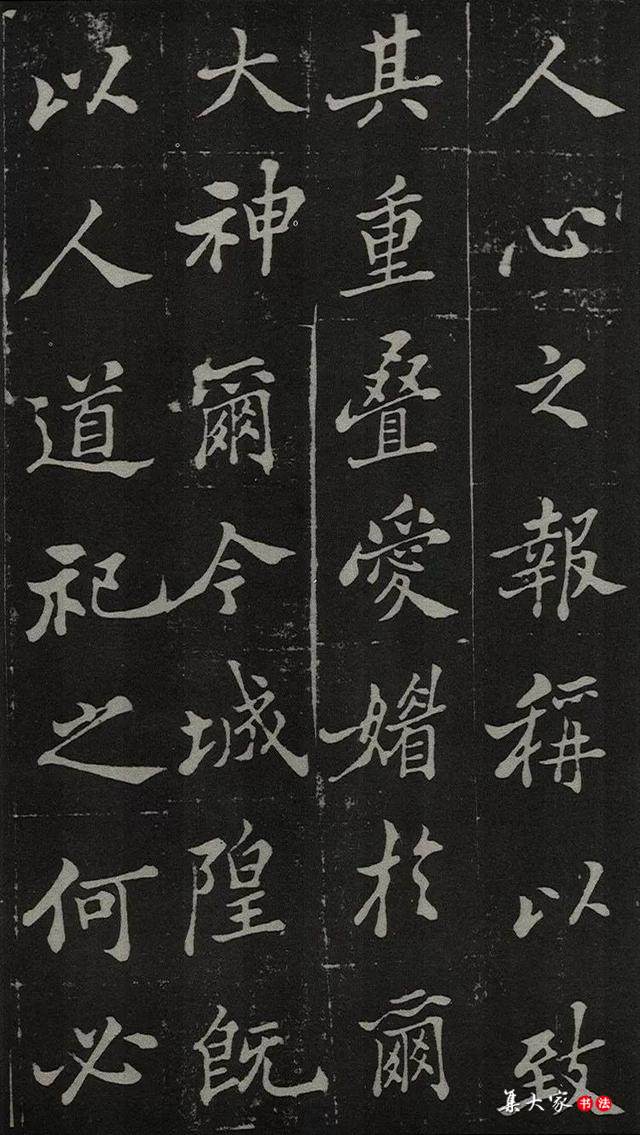 人心之報稱以致
其重疊愛媢於爾
大神爾今城隍既
以人道祀之何必
集大家书法